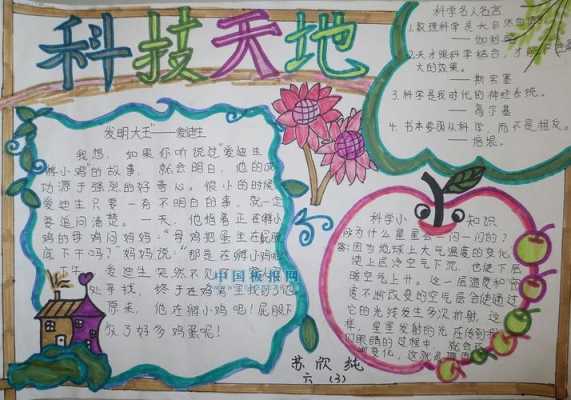 科技天地
发明大王"——爱迪生
我想，如果你听说过"爱迪生
孵小鸡"的故事，就会明白，他的成
功源于强烈的好奇心。很小的时候
爱迪生只要一有不明白的事，就一定
要追问清楚。一天，他指着正在孵小
鸡的母鸡问妈妈："母鸡把蛋坐在屁股
底下干吗？"妈妈说："那是在孵小鸡
爱迪生突然不见
处寻找，终于在鸡窝里找到了他
原来，他在孵小鸡呢！屁股下
放了好多鸡蛋呢！
中国板报网
苏欣纯
六（3）
科学名人名言
1.数理科学是大自然
——伽利略
2.天才跟科学结合，才能
大的效果。
——斯宾塞
3.科学是我时代的神经系统。
——高尔基
4.书本要随从科学，而不是相反。
——培根。
科学小知识
问为什么星星会一闪一闪的？
答：因为地球上大气温度的变化
使上层冷空气下沉，也使下层
暖空气上升。这一层温度和密
度不断改变的空气层会使通过
它的光线发生多次折射，这
样，星星发射的光在传到我
们眼睛的过程中，就会
变化，这就